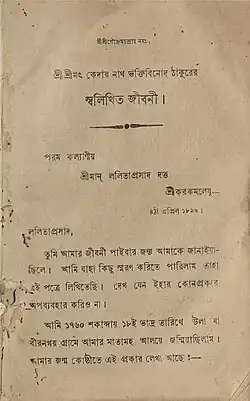 শ্রীশ্রীগোদ্রুমচন্দ্রায় নমঃ
শ্রীশ্রীমৎ কেদার নাথ ভক্তিবিনোদ ঠাকুরের
স্বলিখিত জীবনী।
পরম কল্যাণীয়
শ্রীমান্ ললিতাপ্রসাদ দত্ত
শ্রীকরকমলেষু—
৪ঠা এপ্রিল ১৮৯৬।
ললিতাপ্রসাদ,
তুমি আমার জীবনী পাইবার জন্য আমাকে জানাইয়া-
ছিলে। আমি যাহা কিছু স্মরণ করিতে পারিলাম তাহা
এই পত্রে লিখিতেছি। দেখ যেন ইহার কোনপ্রকার
অপব্যবহার করিও না।
আমি ১৭৬০ শকাব্দায় ১৮ই ভাদ্র তারিখে উলা বা
বীরনগর গ্রামে আমার মাতামহ আলয়ে জন্মিয়াছিলাম।
আমার জন্ম কোষ্ঠীতে এই প্রকার লেখা আছে:—